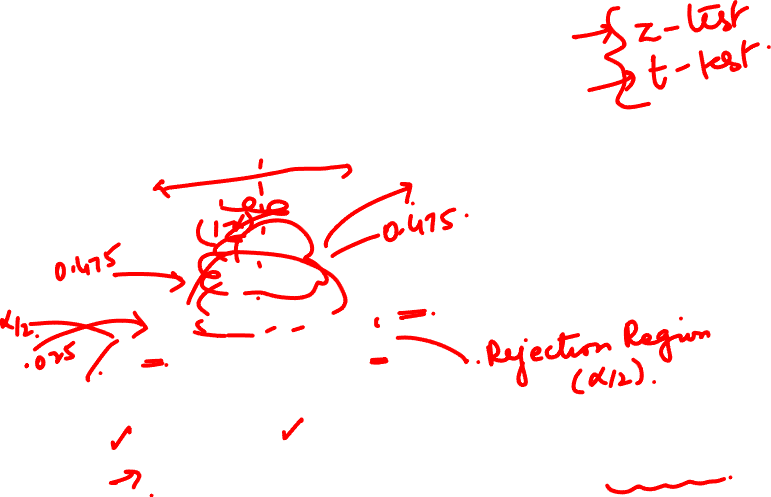 z-test
t-test.
(1-α)
0.475.
0.475
α/2.
.025
Rejection Region
(α/2).